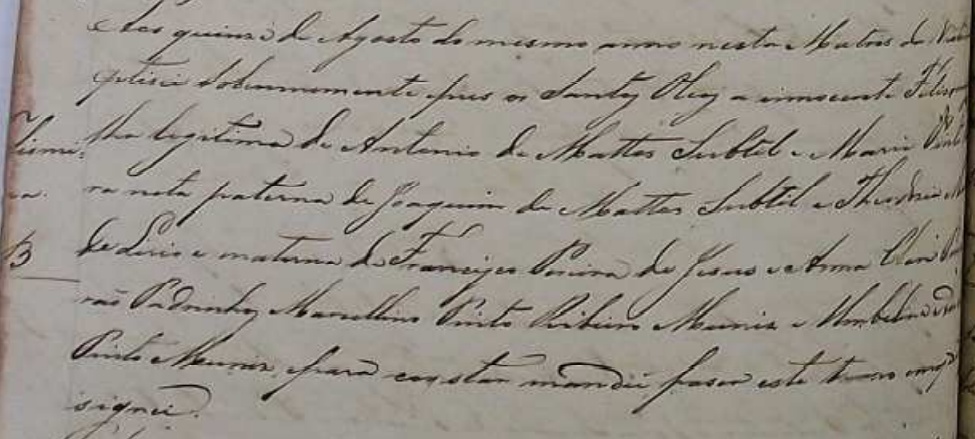 Aos quinze de Agosto do mesmo anno nesta Matris de
ptisei solemnemente e pus os Santos Oleos a innocente
lha legitima de Antonio de Mattos Subtil e Maria
ra neta paterna de Joaquim de Mattos Subtil e Theodora
de Luis e materna de Francisco Pereira de Jesus e Anna Clara
rão Padrinhos Marcellino Pinto Ribeiro Muniz e Umbelina
Pinto Muniz, e para constar mandei faser este termo em q
signei.